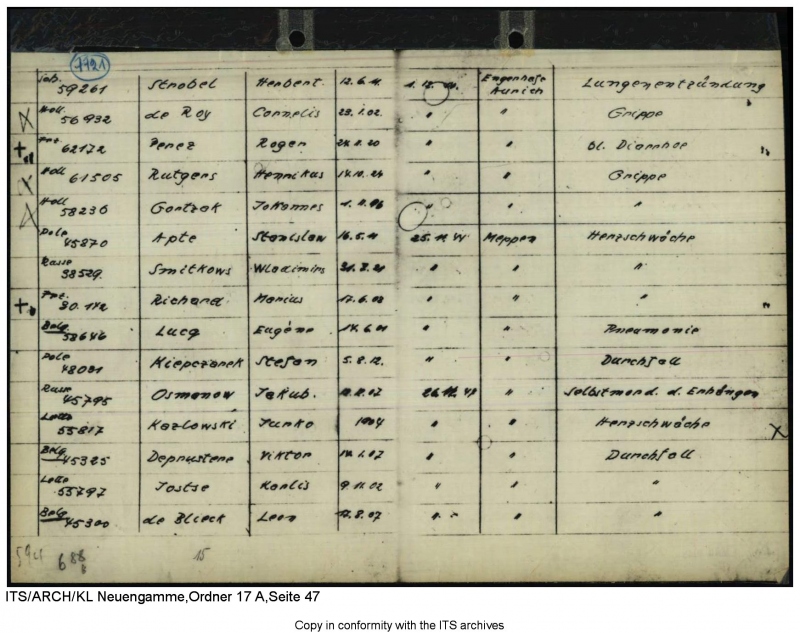 7421
Joh. 59261 Strobel Herbert. 12.6.11 1.12.44. Engerhafe Aurich Lungenentzündung
Holl. 56932 de Roy Cornelis 23.1.02. " " Grippe
Frz. 62172 Perez Roger 24.8.20 " " bl. Diarrhoe
Holl 61505 Rutgers Hennikus 14.10.24 " " Grippe
Holl 58236 Gortzak Johannes " " "
Pole 45870 Apte Stanislaw 16.5.11 25.11.44 Meppen Herzschwäche
Russe 38529. Smitkows Wladimirs 31.8.21 " " "
Frz. 30.142 Richard Marius 17.6.03 " " "
Belg. 58646 Lucq Eugéne 14.6.01 " " Pneumonie
Pole 48081 Kiepczarek Stefan 5.8.12. " " Durchfall
Russe 45795 Osmanow Jakub. " Selbstmord d. Erhängen
Lette 55817 Kozlowski Junko 1904 " " Herzschwäche
Belg 45325 Deprustere Viktor 14.1.07 " " Durchfall
Lette 55797 Jostse Karlis 9.11.02 " " "
Belg 45300 de Blieck Leon 17.8.07 " " "
594 688 15
ITS/ARCH/KL Neuengamme,Ordner 17 A,Seite 47
Copy in conformity with the ITS archives